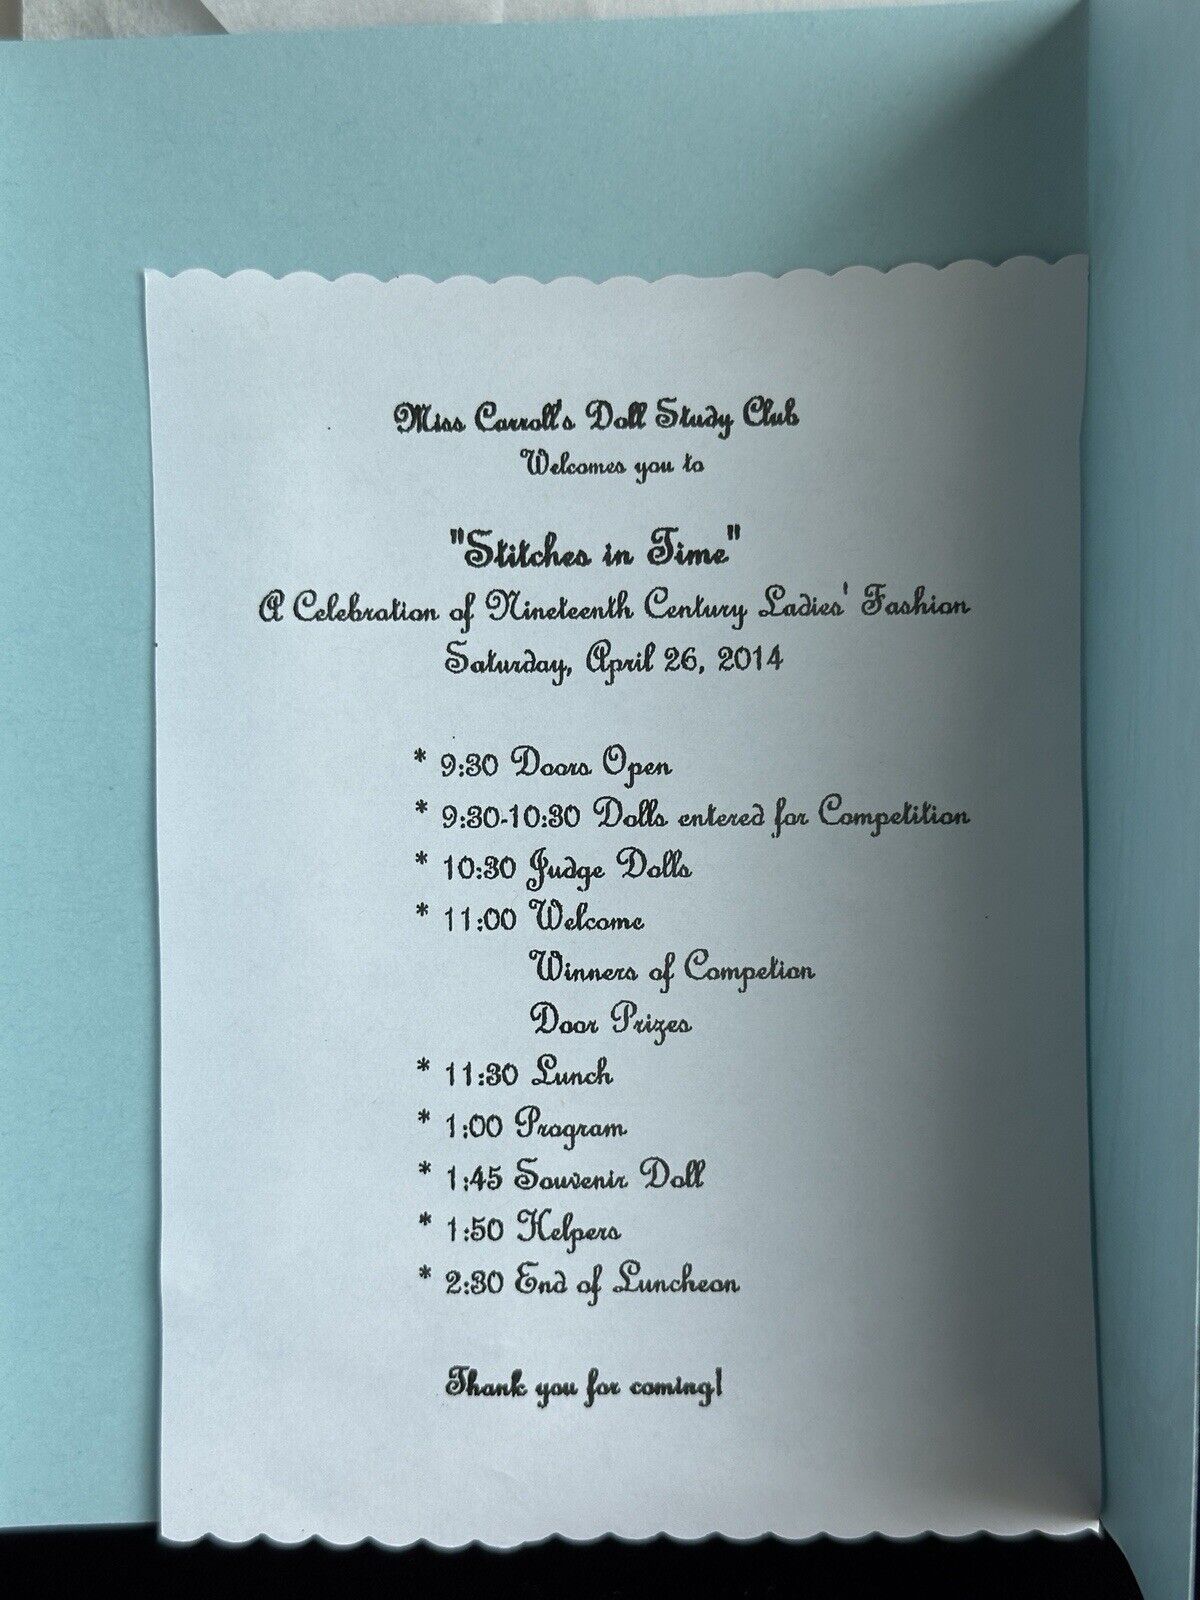 Miss Carroll's Doll Study Club
Welcomes you to
"Stitches in Time"
A Celebration of Nineteenth Century Ladies' Fashion
Saturday, April 26, 2014
* 9:30 Doors Open
* 9:30-10:30 Dolls entered for Competition
* 10:30 Judge Dolls
* 11:00 Welcome
Winners of Competion
Door Prizes
* 11:30 Lunch
* 1:00 Program
* 1:45 Souvenir Doll
* 1:50 Helpers
* 2:30 End of Luncheon
Thank you for coming!